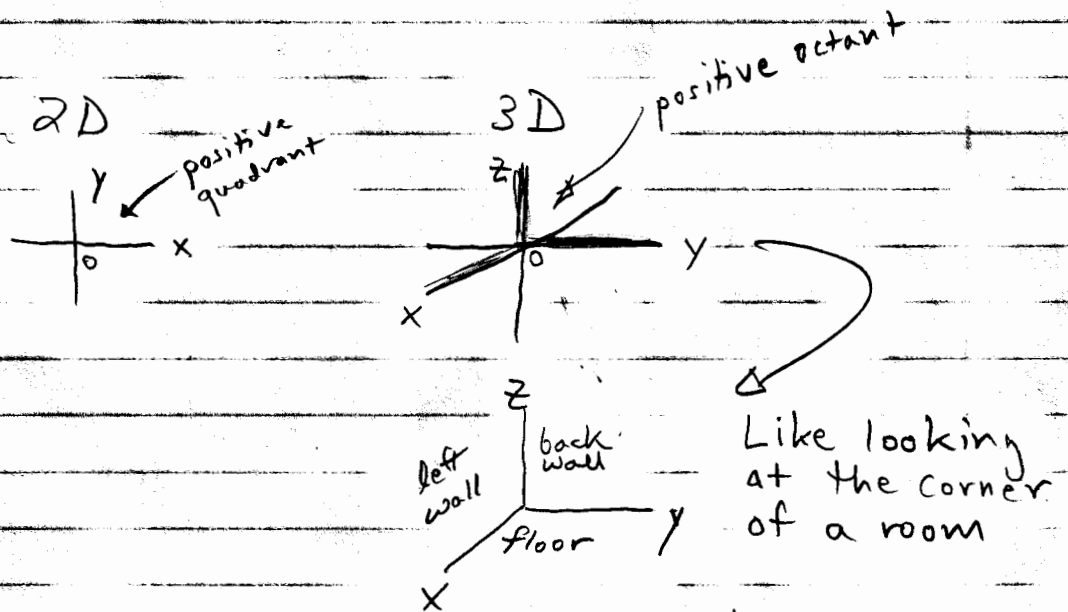 2D
positive
quadrant
Y
X
O
3D
positive octant
Z
O
Y
X
Z
left
wall
back
wall
floor
Y
X
Like looking
at the corner
of a room